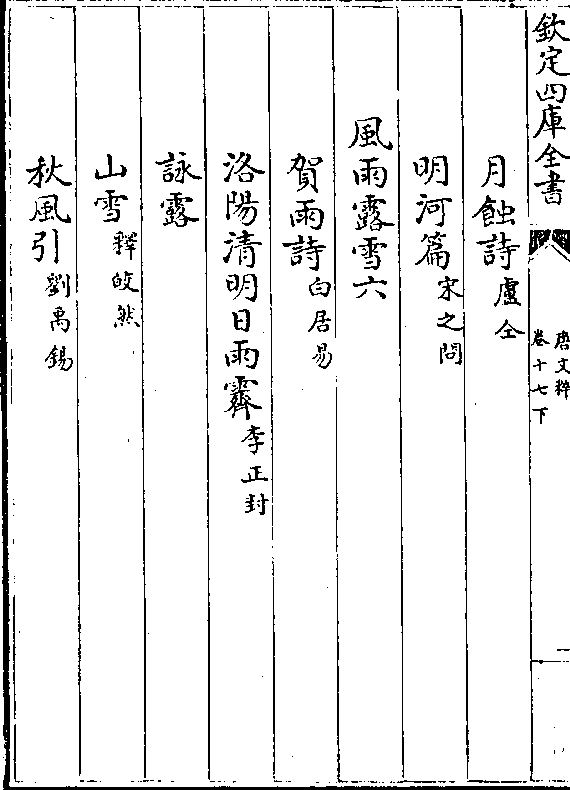 欽定四庫全書
唐文粹
卷十七下
月蝕詩盧仝
明河篇宋之問
風雨露雪六
賀雨詩白居易
洛陽清明日雨霽李正封
詠露
山雪釋皎然
秋風引劉禹錫